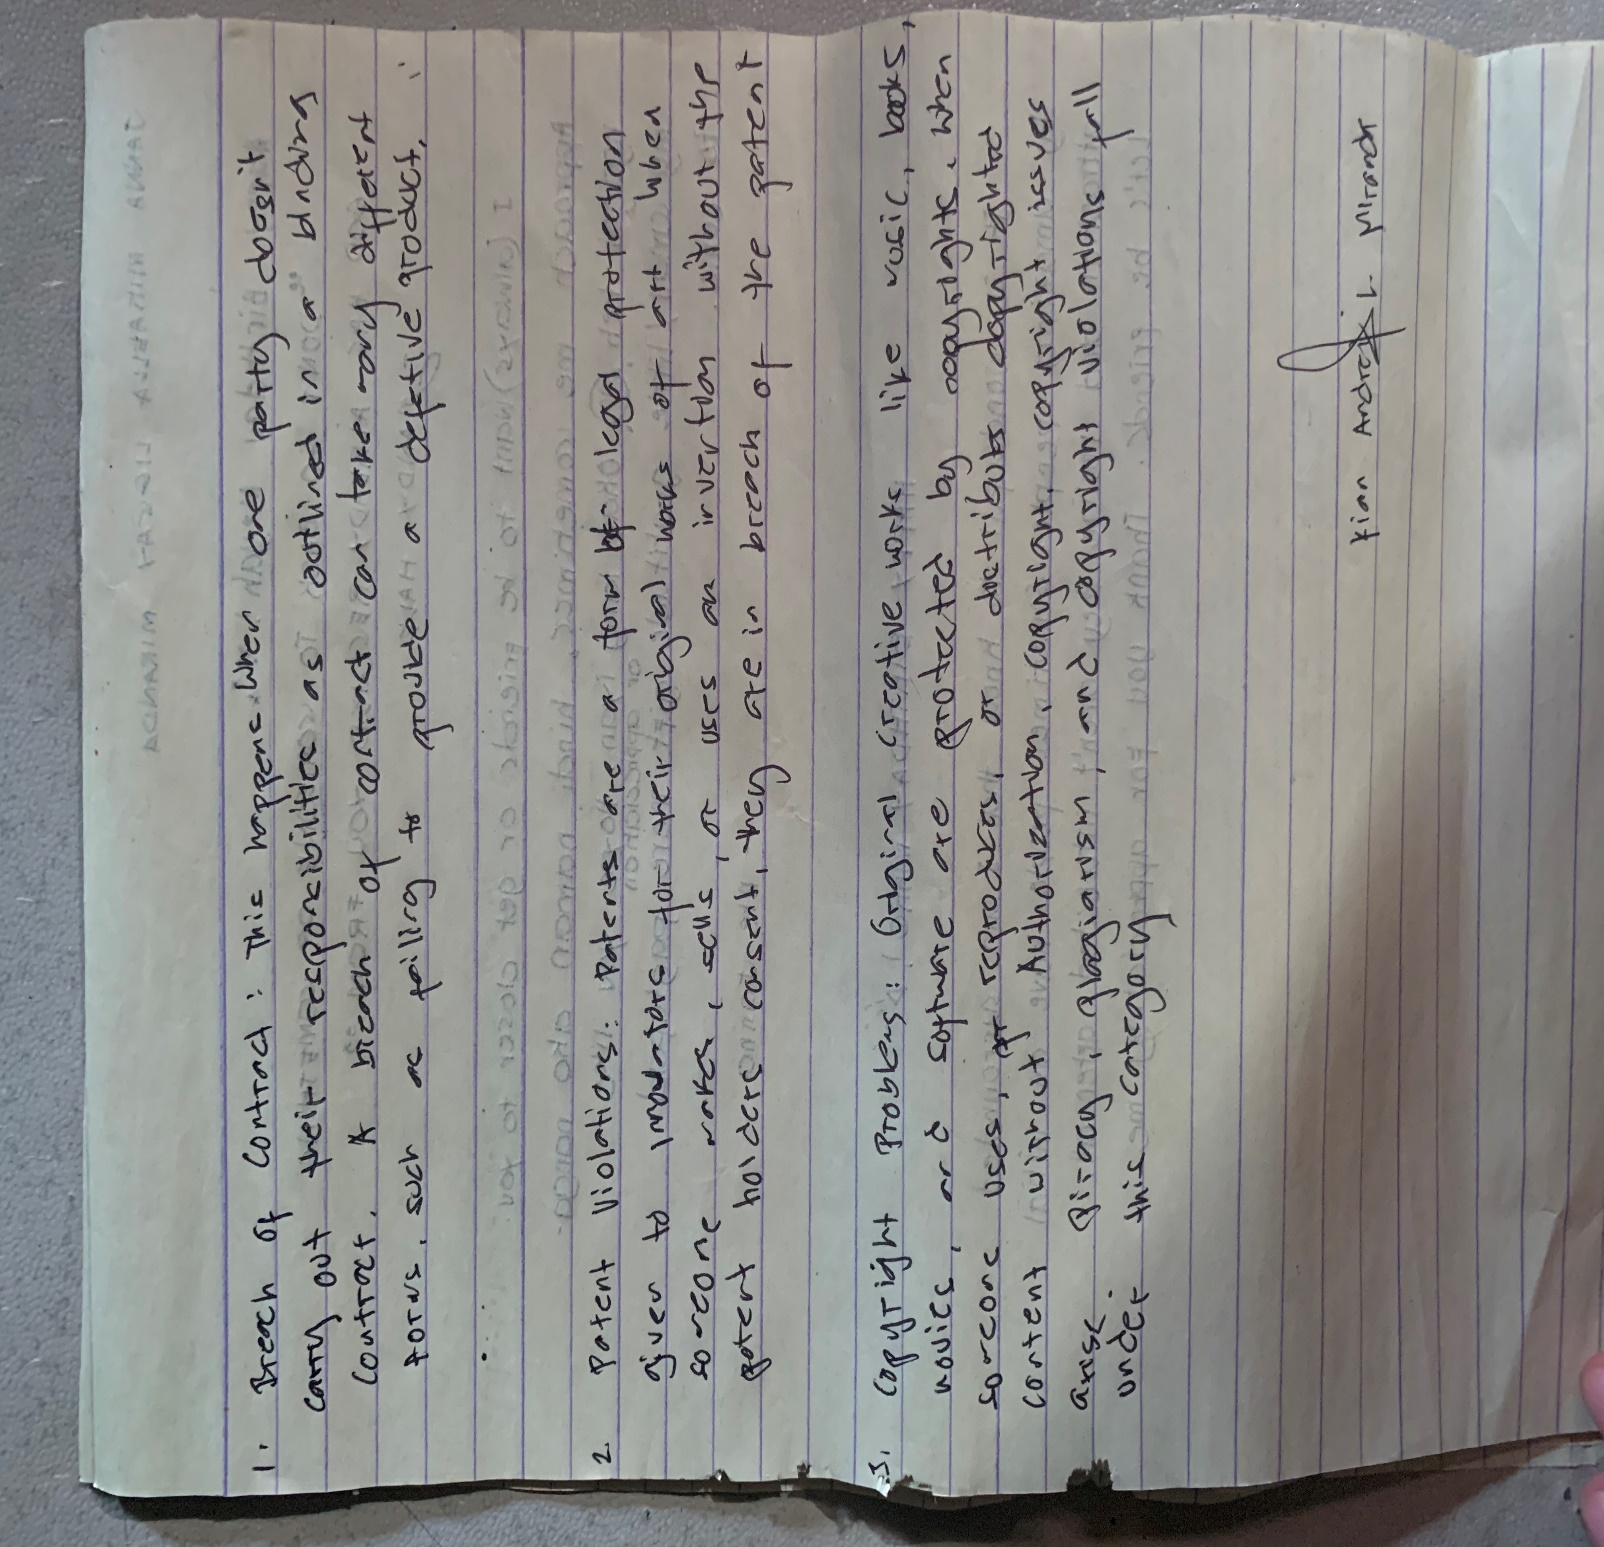 1. Breach of Contract : This happens when one party doesn't
carry out their responsibilities as outlined in a binding
Contract. A breach of contract can take many different
forms, such as failing to provide a defective product.
2. Patent Violations: Patents are a form of legal protection
given to innovators for their original works of art when
someone makes, sells, or uses an invention without the
patent holders consent, they are in breach of the patent
3. Copyright Problems: Original creative works like music, books,
movies, and software are protected by copyrights. When
someone uses, or reproduces, or distributes copyrighted
content without Authorization, copyright, copyright issues
arise piracy, plagiarism, and copyright violations fall
under this category
Kian Andrei L. Miranda